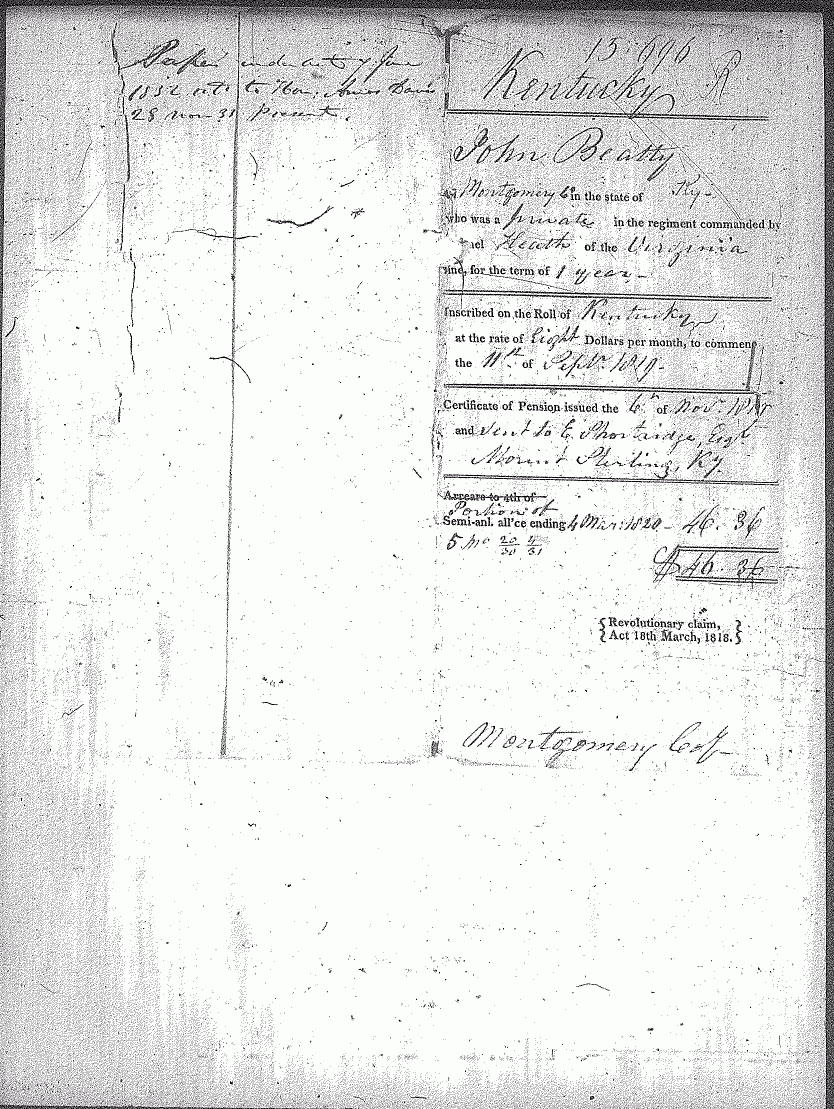 Papers under act of June
1832 sent to Hon. Amos Davis
28 Nov 33 Present.
15.696
Kentucky R
John Beatty
Montgomery Co in the state of Ky-
who was a private in the regiment commanded by
nel Heath of the Virginia
line, for the term of 1 year-
Inscribed on the Roll of Kentucky
at the rate of Eight Dollars per month, to commence
the 11th of Septr. 1819-
Certificate of Pension issued the 6th of Novr.
and sent to E. Shortridge, Esqr
Mount Sterling, Ky.
Arrears to 4th of
Portion of
Semi-anl. all'ce ending 4 Mar: 1820- 46. 36
5 mo 20/30 4/31
$46. 36
{Revolutionary claim,}
{Act 18th March, 1818.}
Montgomery Coy-